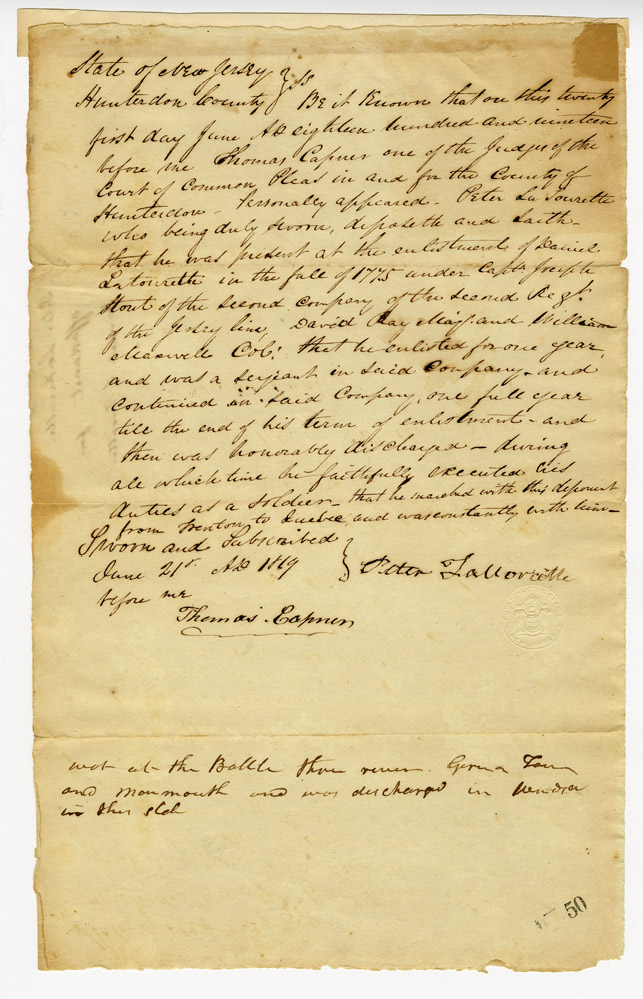 State of New Jersey } ss
Hunterdon County } Be it Known that on this twenty
first day June AD eighteen hundred and nineteen
before me Thomas Capner one of the Judges of the
Court of Common Pleas in and for the County of
Hunterdon - Personally appeared - Peter La Tourette
who being duly sworn, deposeth and saith -
that he was present at the enlistment of Daniel
Latourette in the fall of 1775 under Capt. Joseph
Stout of the second company of the second Regt.
of the Jersey line, David Ray Maj. and William
Maxwell Col: that he enlisted for one year,
and was a serjeant in said Company - and
continued in said Company, one full year
till the end of his term of enlistment - and
then was honorably discharged - during
all which time he faithfully executed his
duties as a soldier - that he marched with this deponent
from Trenton to Quebec, and was constantly with him -
Sworn and Subscribed
June 21st. AD 1819 } Peter Latourette
before me
Thomas Capner
at the Battle
and monmouth and was discharged in
in this
50